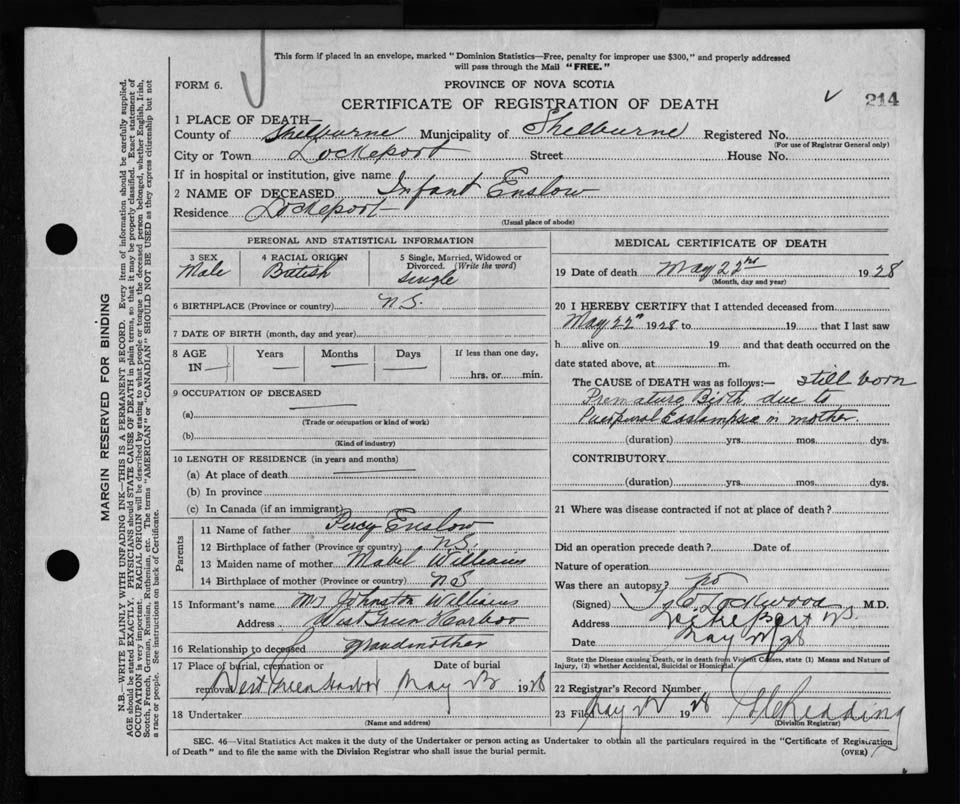 This form if placed in an envelope, marked "Dominion Statistics—Free, penalty for improper use $300," and properly addressed
will pass through the Mail "FREE."
FORM 6.
PROVINCE OF NOVA SCOTIA
CERTIFICATE OF REGISTRATION OF DEATH
214
1 PLACE OF DEATH—
County of Shelburne Municipality of Shelburne Registered No.
(For use of Registrar General only)
City or Town Lockeport Street House No.
If in hospital or institution, give name
2 NAME OF DECEASED Infant Enslow
Residence Lockeport
(Usual place of abode)
PERSONAL AND STATISTICAL INFORMATION
3 SEX 4 RACIAL ORIGIN 5 Single, Married, Widowed or Divorced. (Write the word)
Male British Single
6 BIRTHPLACE (Province or country) N.S.
7 DATE OF BIRTH (month, day and year)
8 AGE IN Years Months Days If less than one day,
hrs. or min.
9 OCCUPATION OF DECEASED
(a)
(Trade or occupation or kind of work)
(b)
(Kind of industry)
10 LENGTH OF RESIDENCE (in years and months)
(a) At place of death
(b) In province
(c) In Canada (if an immigrant)
Parents
11 Name of father Percy Enslow
12 Birthplace of father (Province or country) N.S.
13 Maiden name of mother Mabel Williams
14 Birthplace of mother (Province or country) N.S
15 Informant's name Mrs Johnston Williams
Address West Green Harbor
16 Relationship to deceased Grandmother
17 Place of burial, cremation or removal West Green Harbor Date of burial May 23 1928
18 Undertaker
(Name and address)
MEDICAL CERTIFICATE OF DEATH
19 Date of death May 22nd 1928
(Month, day and year)
20 I HEREBY CERTIFY that I attended deceased from
May 22" 1928 to 19 that I last saw
h alive on 19 and that death occurred on the
date stated above, at m.
The CAUSE of DEATH was as follows:— still born
Premature Birth, due to
Puerperal Eclampsia in mother.
(duration) yrs. mos. dys.
CONTRIBUTORY.
(duration) yrs. mos. dys.
21 Where was disease contracted if not at place of death?
Did an operation precede death? Date of
Nature of operation
Was there an autopsy? no
(Signed) Lockwood M.D.
Address Lockeport N.S.
Date May 28
State the Disease causing Death, or in death from Violent Causes, state (1) Means and Nature of
Injury, (2) whether Accidental, Suicidal or Homicidal.
22 Registrar's Record Number
23 Filed May 1928
(Division Registrar)
SEC. 46—Vital Statistics Act makes it the duty of the Undertaker or person acting as Undertaker to obtain all the particulars required in the "Certificate of Registration
of Death" and to file the same with the Division Registrar who shall issue the burial permit.
(OVER)
MARGIN RESERVED FOR BINDING
N.B.—WRITE PLAINLY WITH UNFADING INK—THIS IS A PERMANENT RECORD. Every item of information should be carefully supplied.
AGE should be stated EXACTLY. PHYSICIANS should STATE CAUSE OF DEATH in plain terms, so that it may be properly classified. Exact statement of
OCCUPATION is very important. RACIAL ORIGIN will be described by stating to what people or tongue the deceased person belonged, whether English, Irish,
Scotch, French, German, Russian, Ruthenian, etc. The terms "AMERICAN" or "CANADIAN" SHOULD NOT BE USED as they express citizenship but not
a race or people. See instructions on back of Certificate.